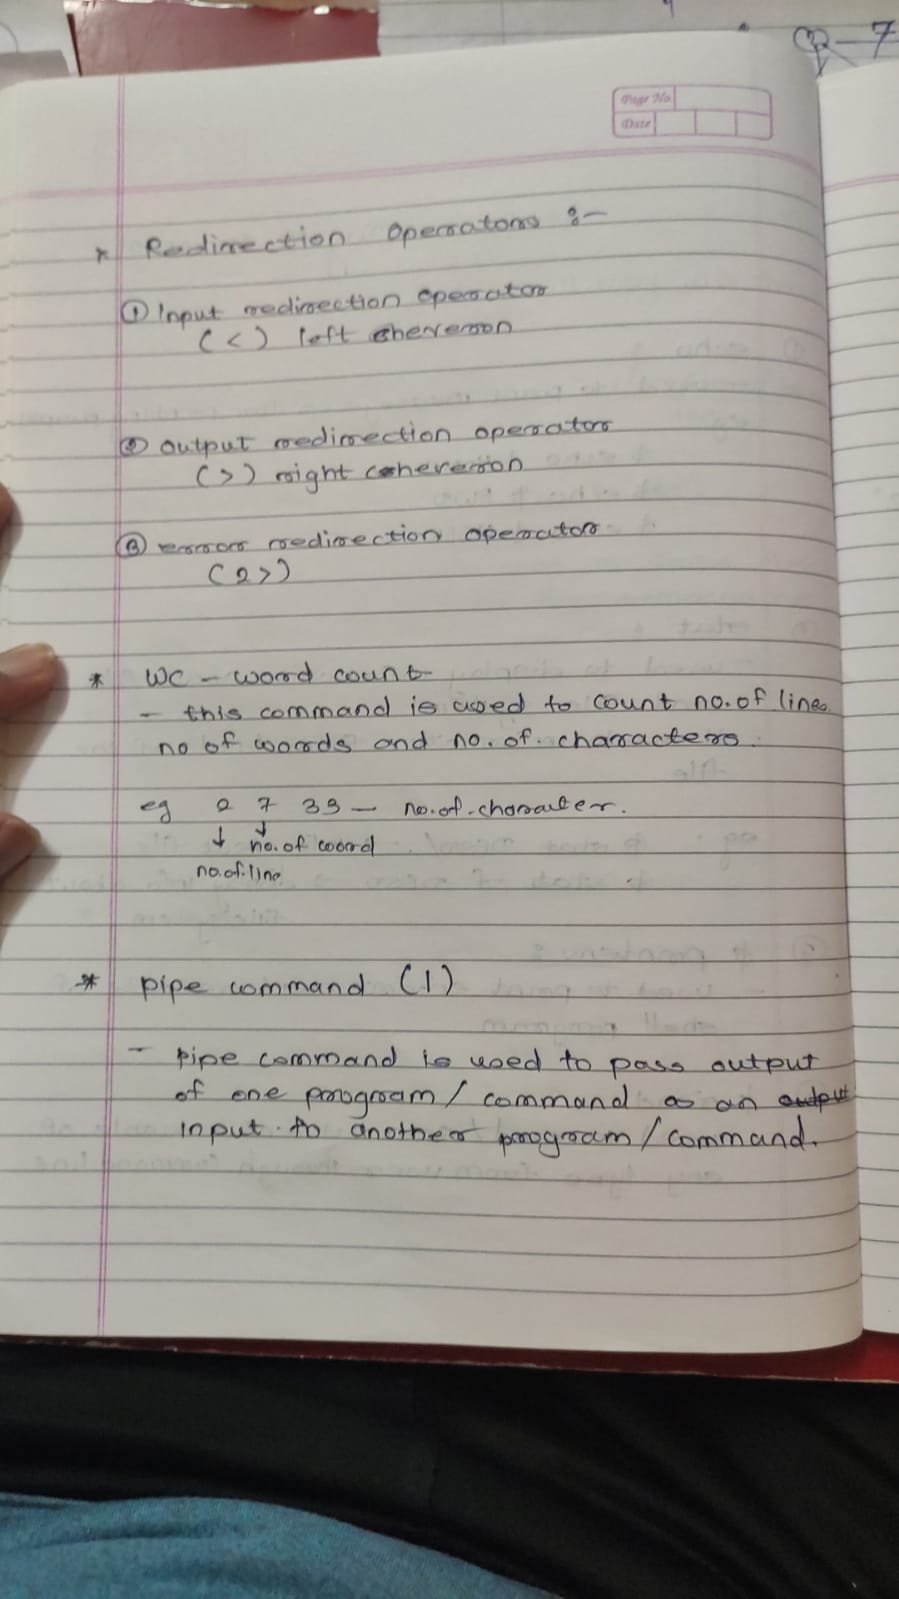 Q-7
Page No.
Date
* Redirection operators :-
① Input redirection operator
(<) left cheveron
② output redirection operator
(>) right cheveron
③ error redirection operator
(2>)
* WC - word count
- this command is used to count no. of lines
no of words and no. of. characters.
eg 2 7 39 - no. of. character.
↓ ↓
no. of word
no. of. line
* pipe command (|)
- pipe command is used to pass output
of one program / command as an output
input to another program / command.